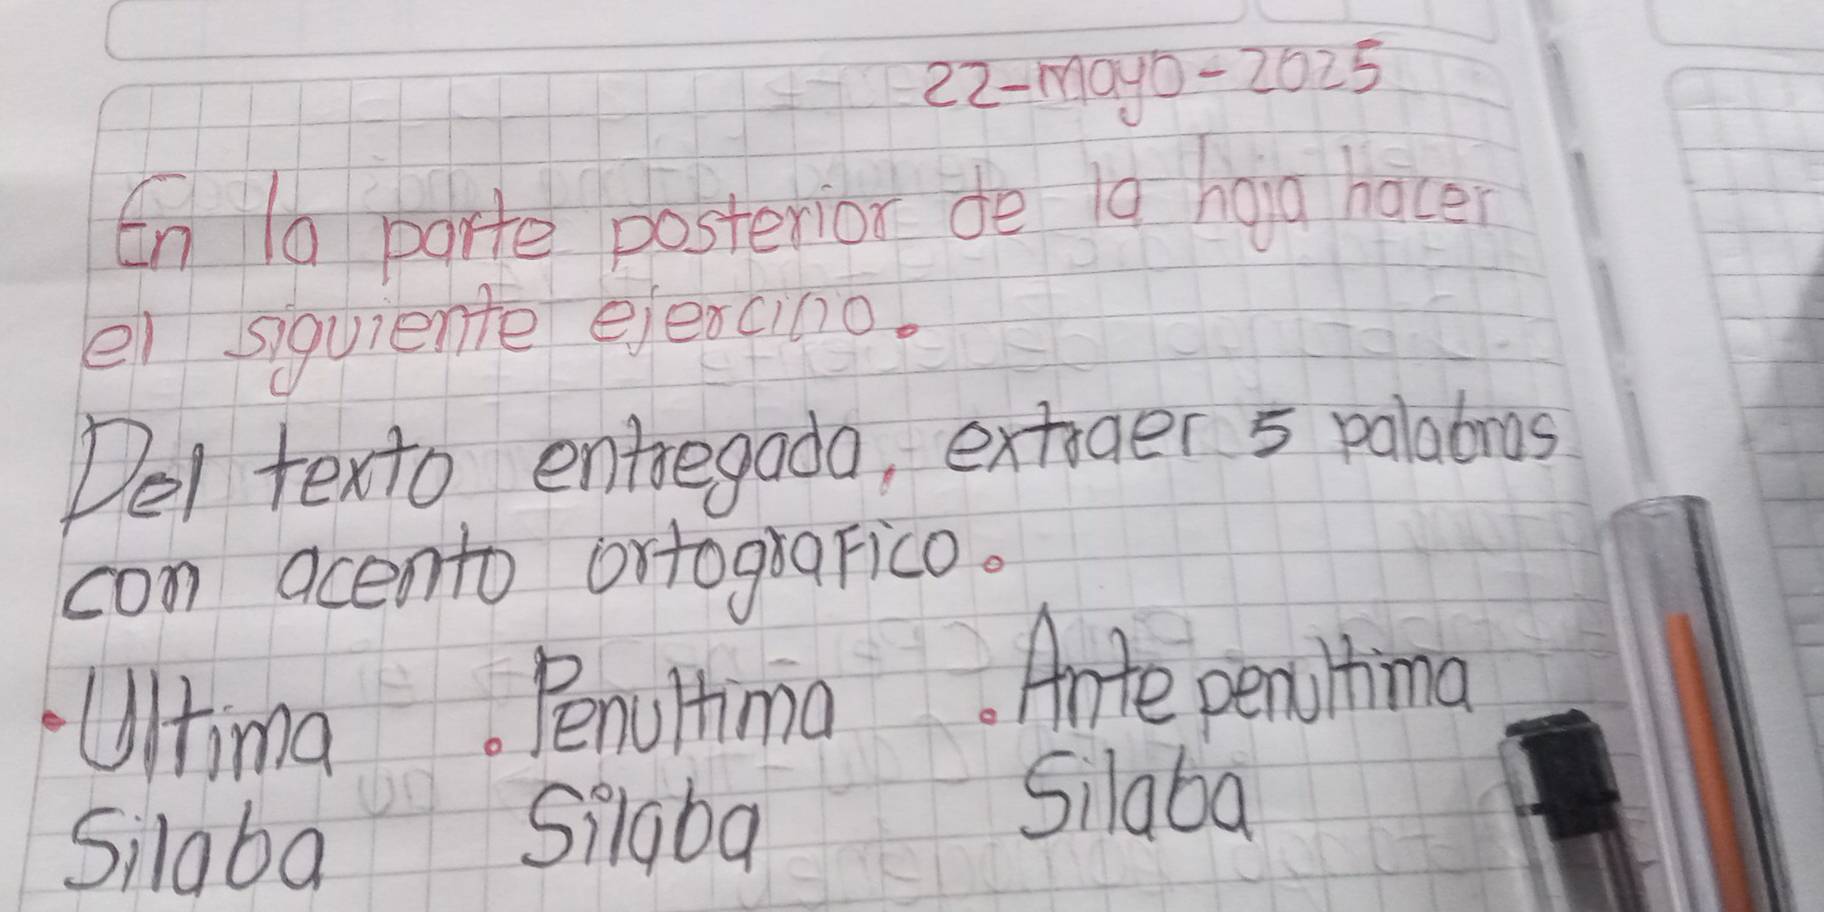 22-mayo-2025
En la parte posterior de la hoja hacer
el siguiente ejercicio.
Del texto entregada, extraer 5 palabras
con acento ortografico.
•Ultima •Penultima •Antepenultima
Silaba Silaba Silaba